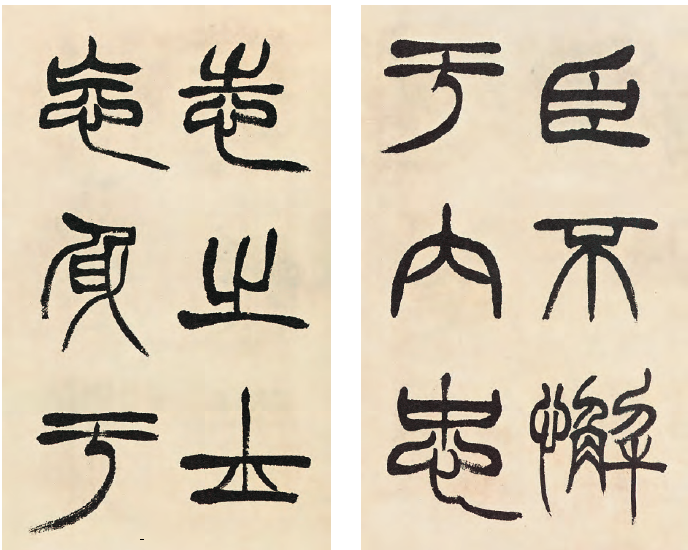 臣不懈
于內忠
志之士
忘身于